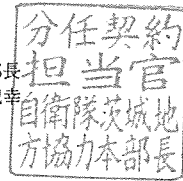 分任契約
担当官
自衛隊茨城地
方協力本部長
長
幸